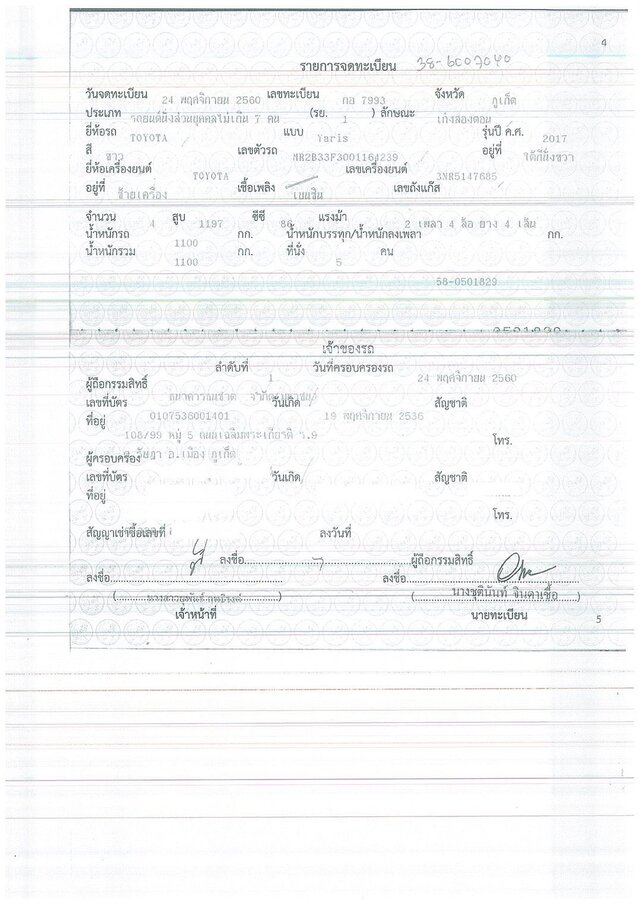 4
รายการจดทะเบียน 38-6007040
วันจดทะเบียน 24 พฤศจิกายน 2560 เลขทะเบียน กอ 7993 จังหวัด ภูเก็ต
ประเภท รถยนต์นั่งส่วนบุคคลไม่เกิน 7 คน (รย. 1 ) ลักษณะ เก๋งสองตอน
ยี่ห้อรถ TOYOTA แบบ Yaris รุ่นปี ค.ศ. 2017
สี ขาว เลขตัวรถ MR2B33F3001164239 อยู่ที่ ใต้ที่นั่งขวา
ยี่ห้อเครื่องยนต์ TOYOTA เลขเครื่องยนต์ 3NR5147685
อยู่ที่ ซ้ายเครื่อง เชื้อเพลิง เบนซิน เลขถังแก๊ส
จำนวน 4 สูบ 1197 ซีซี 86 แรงม้า 2 เพลา 4 ล้อ ยาง 4 เส้น
น้ำหนักรถ 1100 กก. น้ำหนักบรรทุก/น้ำหนักลงเพลา กก.
น้ำหนักรวม 1100 กก. ที่นั่ง 5 คน
58-0501829
เจ้าของรถ
ลำดับที่ 1 วันที่ครอบครองรถ 24 พฤศจิกายน 2560
ผู้ถือกรรมสิทธิ์ ธนาคารธนชาต จำกัด(มหาชน)
เลขที่บัตร 0107536001401 วันเกิด 19 พฤศจิกายน 2536 สัญชาติ
ที่อยู่ 108/99 หมู่ 5 ถนนเฉลิมพระเกียรติ ร.9
โทร.
ผู้ครอบครอง อ.เมือง ภูเก็ต
เลขที่บัตร วันเกิด สัญชาติ
ที่อยู่
โทร.
สัญญาเช่าซื้อเลขที่ ลงวันที่
ลงชื่อ ผู้ถือกรรมสิทธิ์
ลงชื่อ ลงชื่อ
( ) (นางชุตินันท์ จินดาเชื้อ)
เจ้าหน้าที่ นายทะเบียน
5